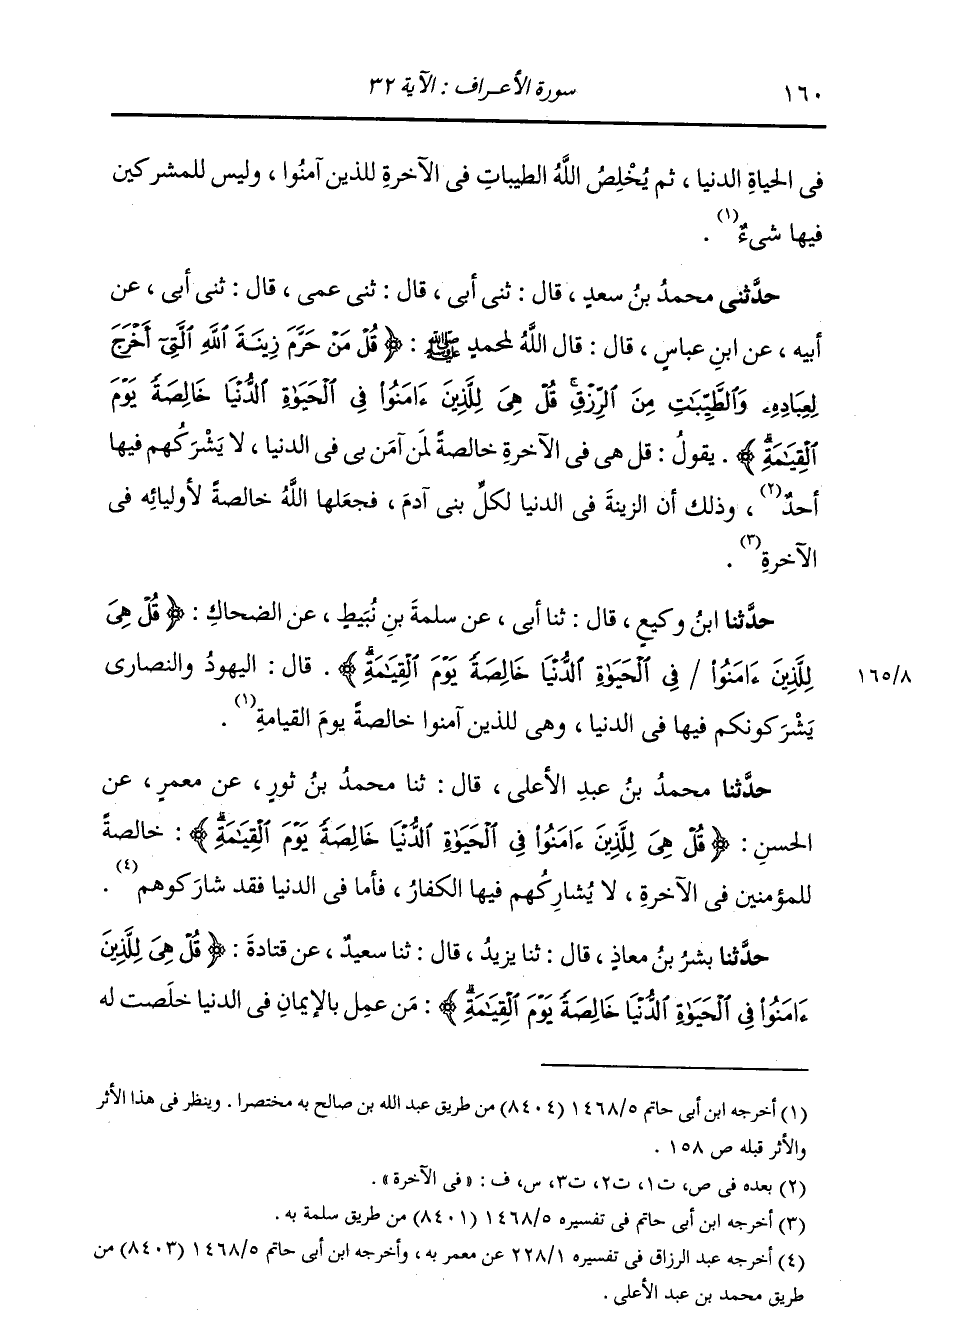 ١٦٠
سورة الأعراف : الآية ٣٢
فى الحياةِ الدنيا ، ثم يُخْلِصُ اللَّهُ الطيباتِ فى الآخرةِ للذين آمنُوا ، وليس للمشركين
فيها شىءٌ(١) .
حدَّثنى محمدُ بنُ سعدٍ ، قال : ثنى أبى ، قال : ثنى عمى ، قال : ثنى أبى ، عن
أبيه ، عن ابنِ عباسٍ ، قال : قال اللَّهُ لمحمدٍ ﷺ : ﴿ قُلْ مَنْ حَرَّمَ زِينَةَ ٱللَّهِ ٱلَّتِىٓ أَخْرَجَ
لِعِبَادِهِۦ وَٱلطَّيِّبَٰتِ مِنَ ٱلرِّزْقِۚ قُلْ هِىَ لِلَّذِينَ ءَامَنُوا۟ فِى ٱلْحَيَوٰةِ ٱلدُّنْيَا خَالِصَةً يَوْمَ
ٱلْقِيَٰمَةِۗ ﴾ . يقولُ : قل هى فى الآخرةِ خالصةً لمن آمَن بى فى الدنيا ، لا يَشْرَكُهم فيها
أحدٌ(٢) ، وذلك أن الزينةَ فى الدنيا لكلِّ بنى آدمَ ، فجعَلها اللَّهُ خالصةً لأوليائِه فى
الآخرةِ(٣) .
حدَّثنا ابنُ وكيعٍ ، قال : ثنا أبى ، عن سلمةَ بنِ نُبَيطٍ ، عن الضحاكِ : ﴿ قُلْ هِىَ
لِلَّذِينَ ءَامَنُوا۟ / فِى ٱلْحَيَوٰةِ ٱلدُّنْيَا خَالِصَةً يَوْمَ ٱلْقِيَٰمَةِۗ ﴾ . قال : اليهودُ والنصارى
١٦٥/٨
يَشْرَكونكم فيها فى الدنيا ، وهى للذين آمنوا خالصةً يومَ القيامةِ(١) .
حدَّثنا محمدُ بنُ عبدِ الأعلى ، قال : ثنا محمدُ بنُ ثورٍ ، عن معمرٍ ، عن
الحسنِ : ﴿ قُلْ هِىَ لِلَّذِينَ ءَامَنُوا۟ فِى ٱلْحَيَوٰةِ ٱلدُّنْيَا خَالِصَةً يَوْمَ ٱلْقِيَٰمَةِۗ ﴾ : خالصةً
للمؤمنين فى الآخرةِ ، لا يُشارِكُهم فيها الكفارُ ، فأما فى الدنيا فقد شارَكوهم(٤) .
حدَّثنا بشرُ بنُ معاذٍ ، قال : ثنا يزيدُ ، قال : ثنا سعيدٌ ، عن قتادةَ : ﴿ قُلْ هِىَ لِلَّذِينَ
ءَامَنُوا۟ فِى ٱلْحَيَوٰةِ ٱلدُّنْيَا خَالِصَةً يَوْمَ ٱلْقِيَٰمَةِۗ ﴾ : مَن عمِل بالإيمانِ فى الدنيا خلَصت له
(١) أخرجه ابن أبى حاتم ١٤٦٨/٥ (٨٤٠٤) من طريق عبد الله بن صالح به مختصرا . وينظر فى هذا الأثر
والأثر قبله ص ١٥٨ .
(٢) بعده فى ص، ت١، ت٢، ت٣، س، ف : « فى الآخرة » .
(٣) أخرجه ابن أبى حاتم فى تفسيره ١٤٦٨/٥ (٨٤٠١) من طريق سلمة به .
(٤) أخرجه عبد الرزاق فى تفسيره ٢٢٨/١ عن معمر به ، وأخرجه ابن أبى حاتم ١٤٦٨/٥ (٨٤٠٣) من
طريق محمد بن عبد الأعلى .